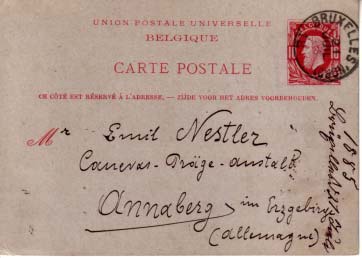 UNION POSTALE UNIVERSELLE
BELGIQUE
CARTE POSTALE
CE CÔTÉ EST RÉSERVÉ À L'ADRESSE. — ZIJDE VOOR HET ADRES VOORBEHOUDEN.
BRUXELLES
Mr Emil Nestler
Canevas-Präge-Anstalt
Annaberg im Erzgebirg
(Allemagne)
1885